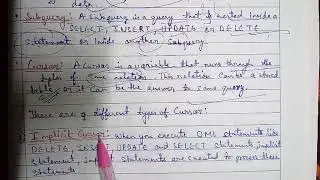 data.
Subquery: A Subquery is a query that is nested inside a
SELECT, INSERT, UPDATE or DELETE
statement or inside another Subquery.
Cursor: A Cursor is a variable that runs through the
tuples of some relation. This relation can be a stored
table, or it can be the answer to some query.
There are 2 different types of Cursor:
Implicit Cursor: when you execute DML statements like
DELETE, INSERT, UPDATE and SELECT statements, implicit
statement, implicit statements are created to process these
statements